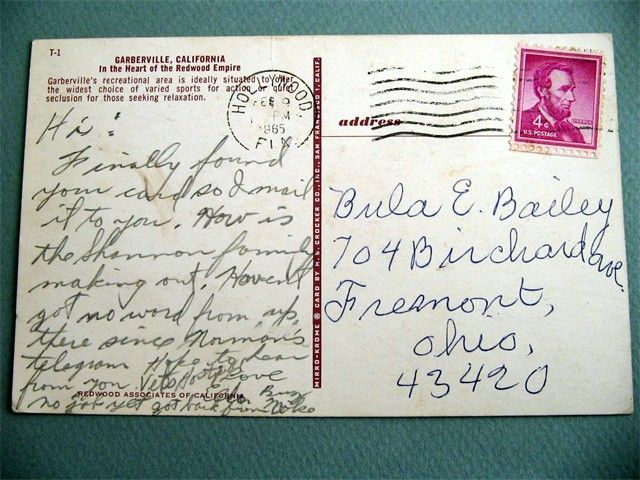 T-1
GARBERVILLE, CALIFORNIA
In the Heart of the Redwood Empire
Garberville's recreational area is ideally situated to offer
the widest choice of varied sports for action or quiet
seclusion for those seeking relaxation.
Hi:
Finally found
your card so I mail
it to you. How is
the Shannon family
making out. Haven't
got no word from up
there since Norman's
telegram Hope to hear
from you Love
no job yet got back from
REDWOOD ASSOCIATES OF CALIFORNIA
MIRRO-KROME ® CARD BY H. S. CROCKER CO., INC., SAN FRANCISCO 1, CALIF.
HOLLYWOOD,
FEB 9
PM
1965
FLA.
address
4¢
U.S. POSTAGE
LINCOLN
Bula E. Bailey
704 Birchard ave.
Fremont,
Ohio,
43420